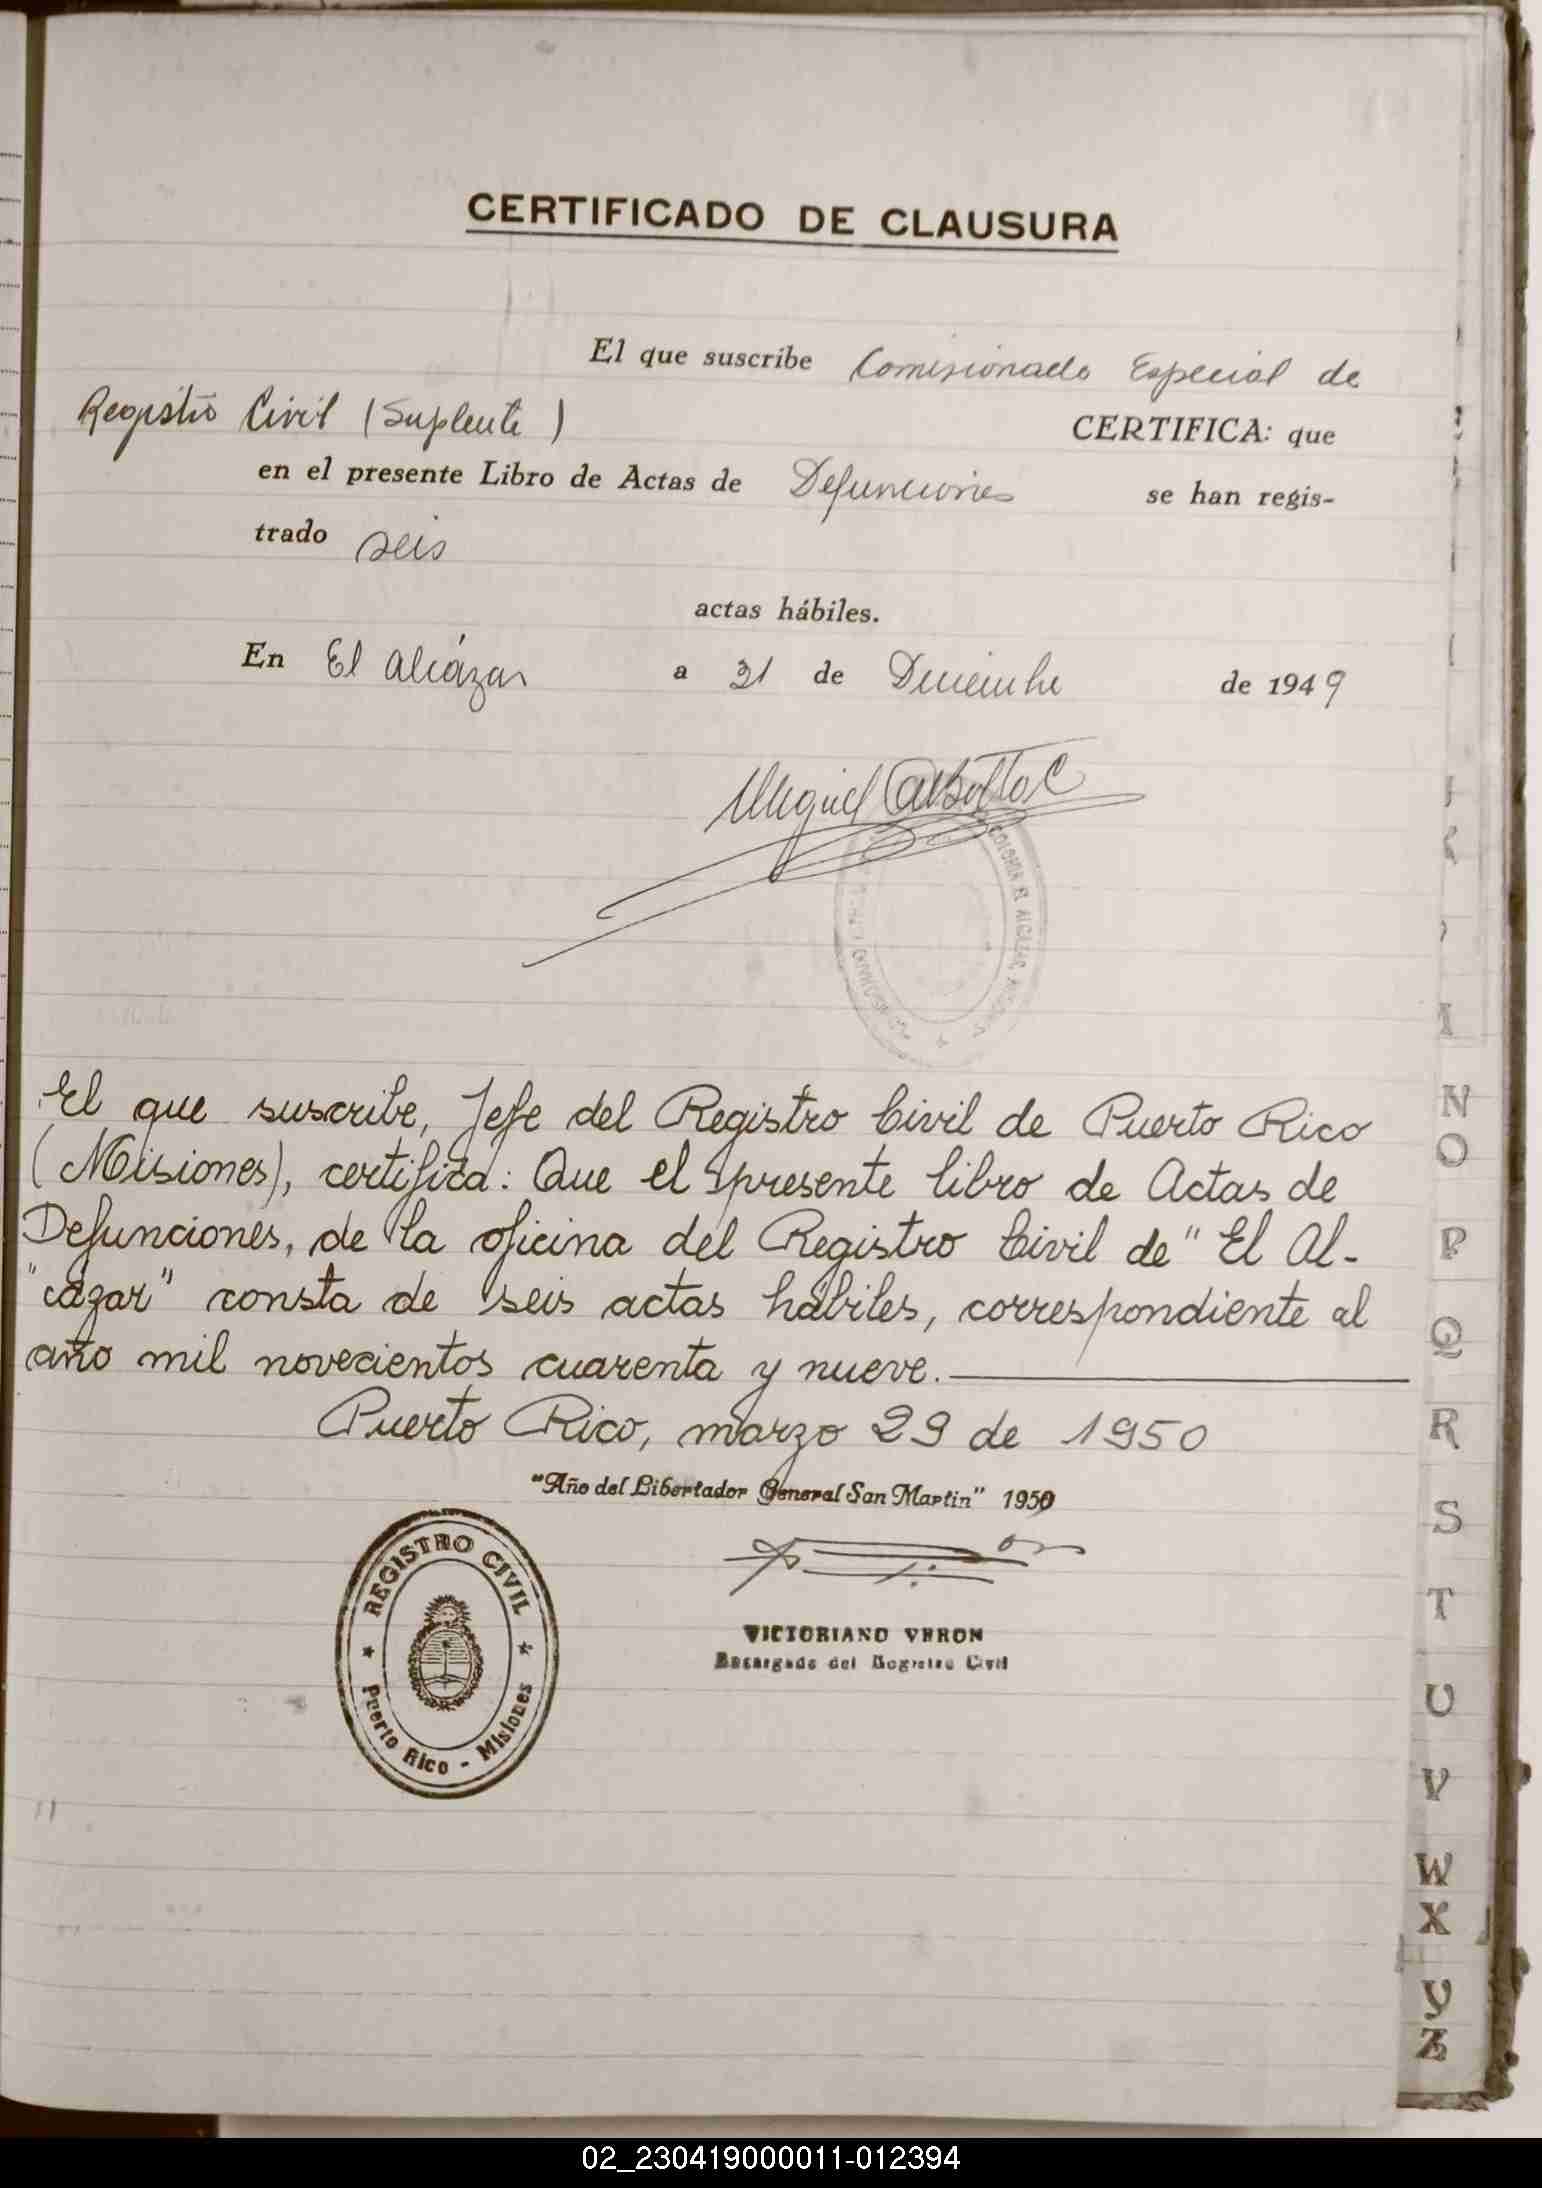 CERTIFICADO DE CLAUSURA
El que suscribe Comisionado Especial de
Registro Civil (Suplente) CERTIFICA: que
en el presente Libro de Actas de Defunciones se han regis-
trado seis
actas hábiles.
En El Alcázar a 31 de Diciembre de 1949
Miguel
COLONIA EL ALCAZAR
El que suscribe, Jefe del Registro Civil de Puerto Rico
(Misiones), certifica: Que el presente libro de Actas de
Defunciones, de la oficina del Registro Civil de "El Al-
"cázar" consta de seis actas hábiles, correspondiente al
año mil novecientos cuarenta y nueve.
Puerto Rico, marzo 29 de 1950
"Año del Libertador General San Martin" 1950
REGISTRO CIVIL
Puerto Rico - Misiones
VICTORIANO VERON
Encargado del Registro Civil
N
O
P
Q
R
S
T
U
V
W
X
Y
Z
02_230419000011-012394